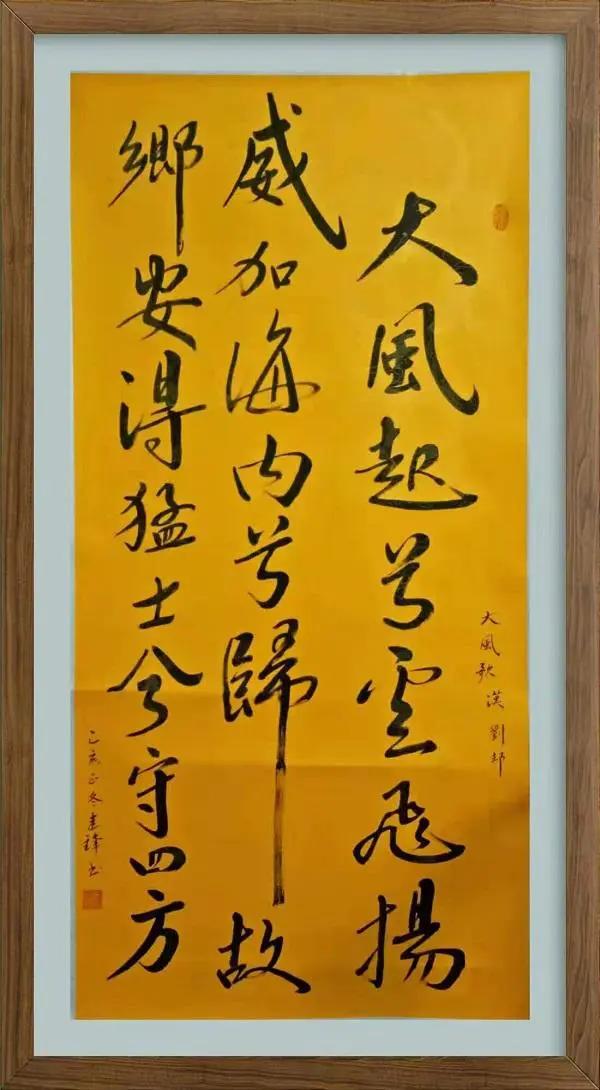 大風歌 漢 劉邦
大風起兮雲飛揚
威加海内兮歸故
鄉安得猛士兮守四方
己亥冬建鋒书